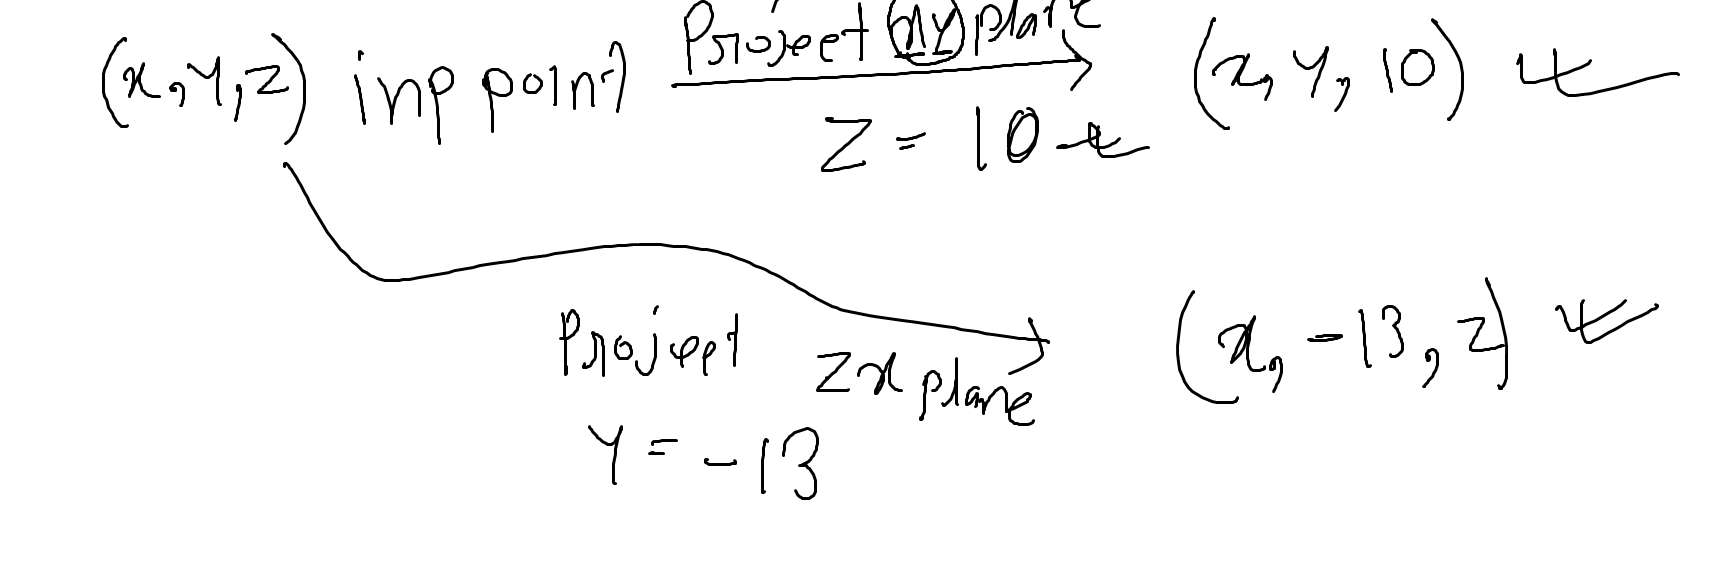 (x, y, z) inp point Project xy plane (x, y, 10)
z = 10
Project zx plane (x, -13, z)
y = -13